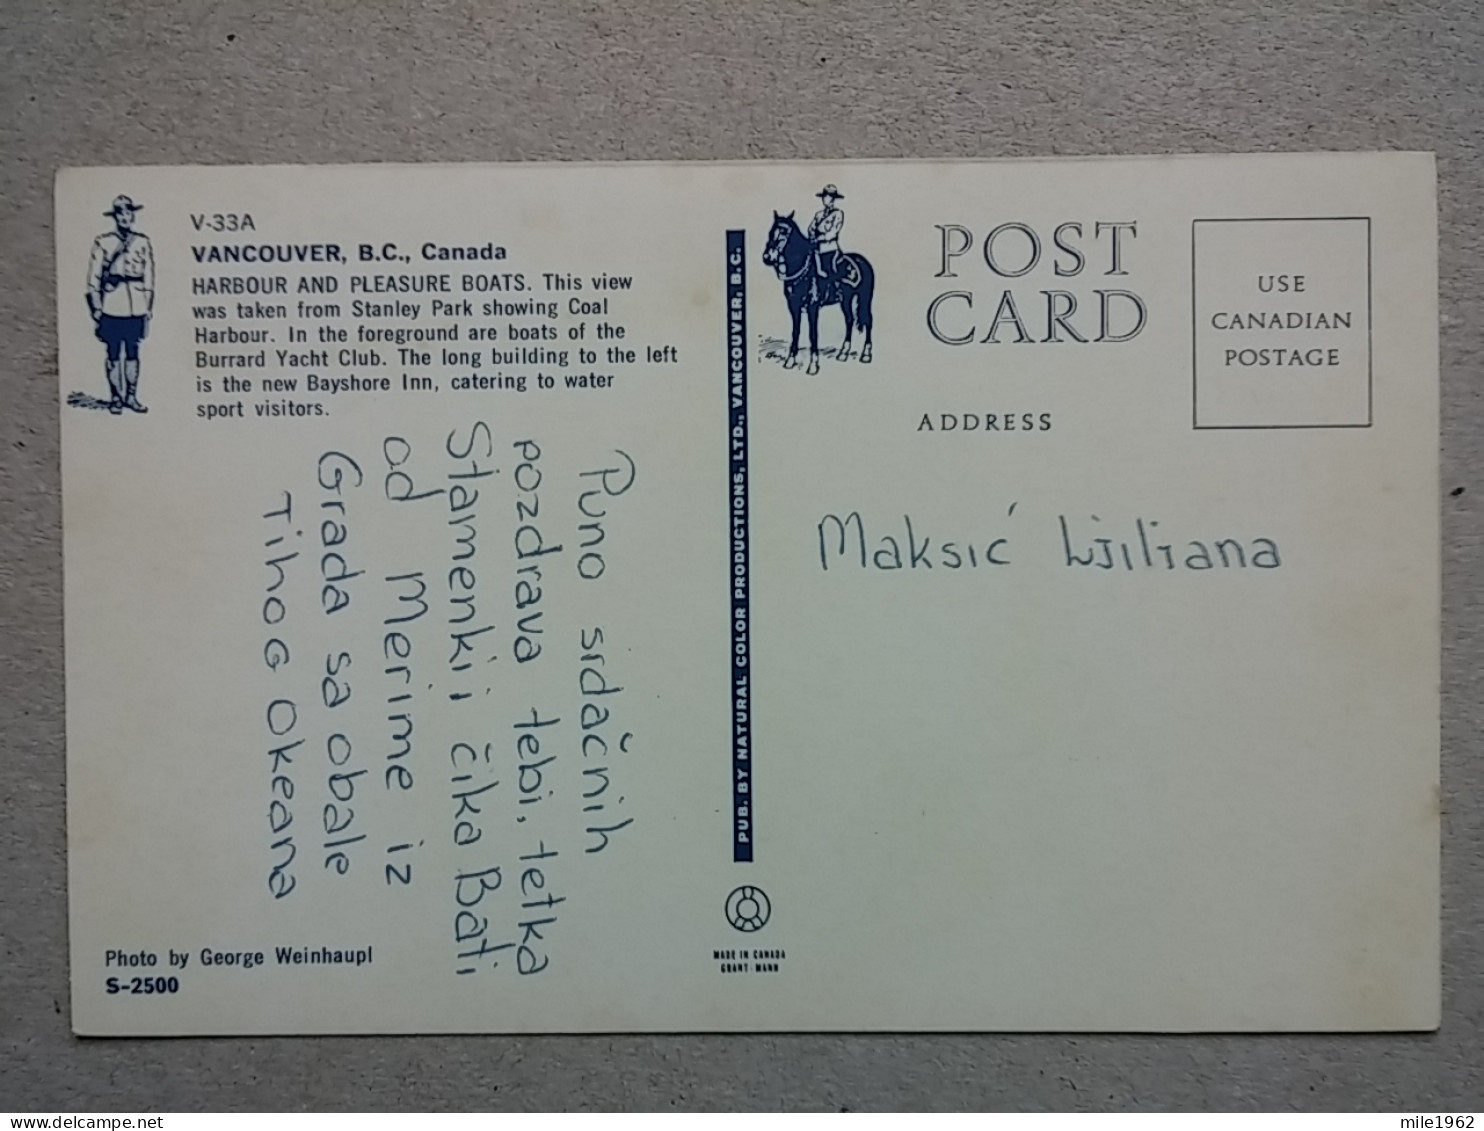 V-33A
VANCOUVER, B.C., Canada
HARBOUR AND PLEASURE BOATS. This view
was taken from Stanley Park showing Coal
Harbour. In the foreground are boats of the
Burrard Yacht Club. The long building to the left
is the new Bayshore Inn, catering to water
sport visitors.
Puno srdačnih
pozdrava tebi, tetka
Stamenki i čika Bati
od Merime iz
Grada sa obale
Tihog Okeana
Photo by George Weinhaupl
S-2500
PUB. BY NATURAL COLOR PRODUCTIONS, LTD., VANCOUVER, B.C.
MADE IN CANADA
GRANT-MANN
POST
CARD
ADDRESS
USE
CANADIAN
POSTAGE
Maksić Ljiljana
mile1962